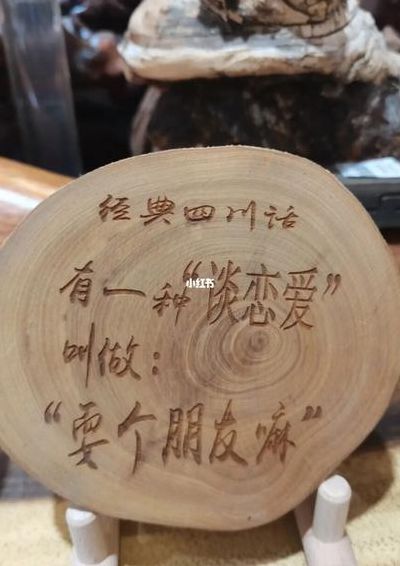 经典四川话
有一种“谈恋爱”
小红书
叫做：
“耍个朋友嘛”